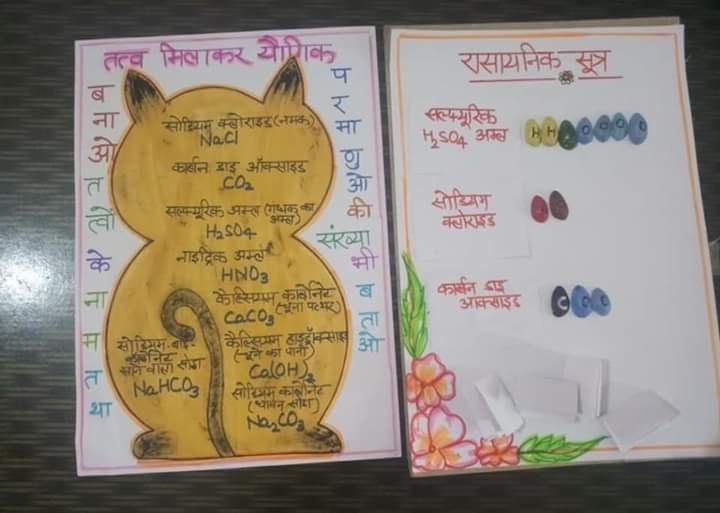 तत्व मिलाकर यौगिक
बनाओ तत्वों के नाम तथा
परमाणुओं की संख्या भी बताओ
सोडियम क्लोराइड (नमक)
NaCl
कार्बन डाइ ऑक्साइड
CO₂
सल्फ्यूरिक अम्ल (गंधक का
अम्ल)
H₂SO₄
नाइट्रिक अम्ल
HNO₃
कैल्सियम कार्बोनेट
CaCO₃ (चूना पत्थर)
कैल्सियम हाइड्रॉक्साइड
(चूने का पानी)
Ca(OH)₂
सोडियम बाइ
कार्बोनेट
खाने वाला सोडा
NaHCO₃
सोडियम कार्बोनेट
(धावन सोडा)
Na₂CO₃
रासायनिक सूत्र
सल्फ्यूरिक
H₂SO₄ अम्ल
H H O O O O
सोडियम
क्लोराइड
कार्बन डाइ
आक्साइड
C O O